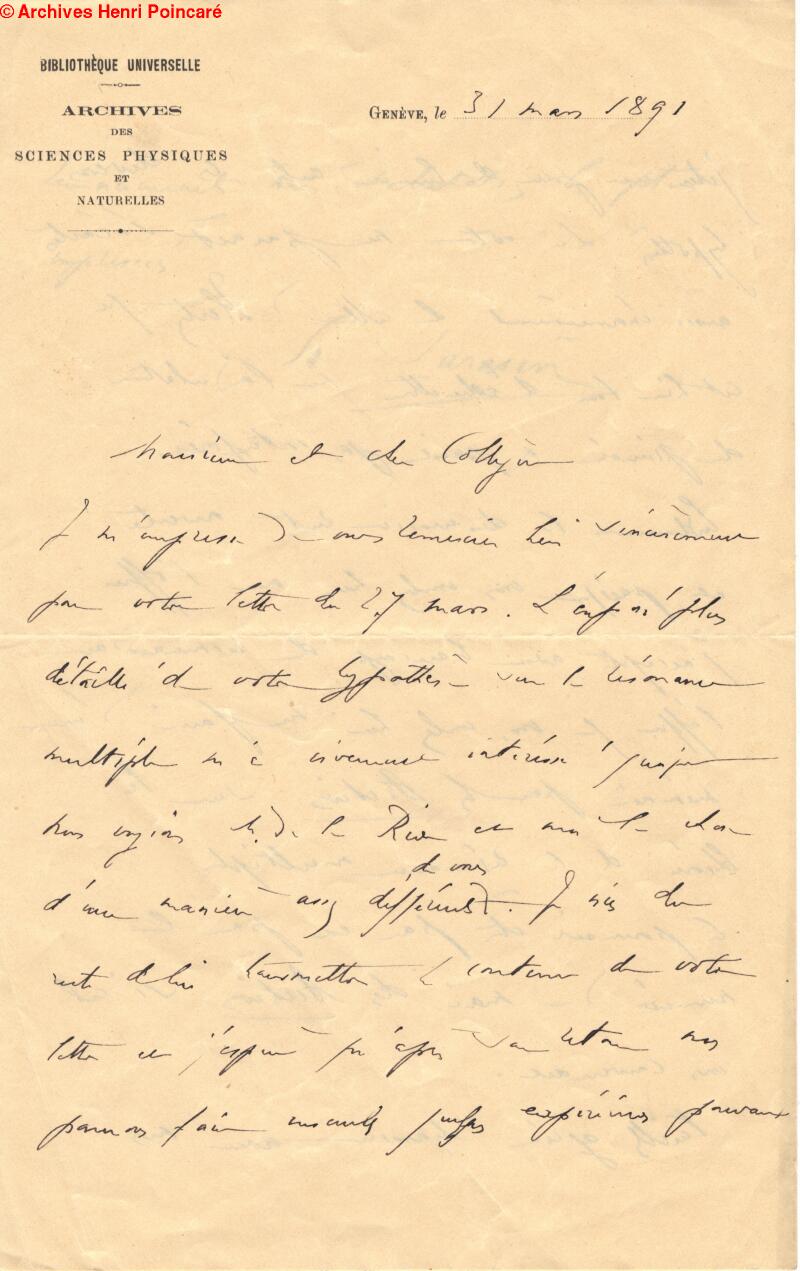 © Archives Henri Poincaré
BIBLIOTHÈQUE UNIVERSELLE
ARCHIVES
DES
SCIENCES PHYSIQUES
ET
NATURELLES
GENÈVE, le 31 mars 1891
Monsieur et cher Collègue
Je m'empresse de vous remercier bien sincèrement
pour votre lettre du 27 mars. L'exposé plus
détaillé de votre hypothèse sur la résonance
multiple m'a vivement intéressé quoique
nous voyions M. de la Rive et moi la chose
de vous
d'une manière assez différente. Je vais du
reste lui transmettre le contenu de votre
lettre et j'espère qu'après son retour nous
pourrons faire ensemble quelques expériences pouvant